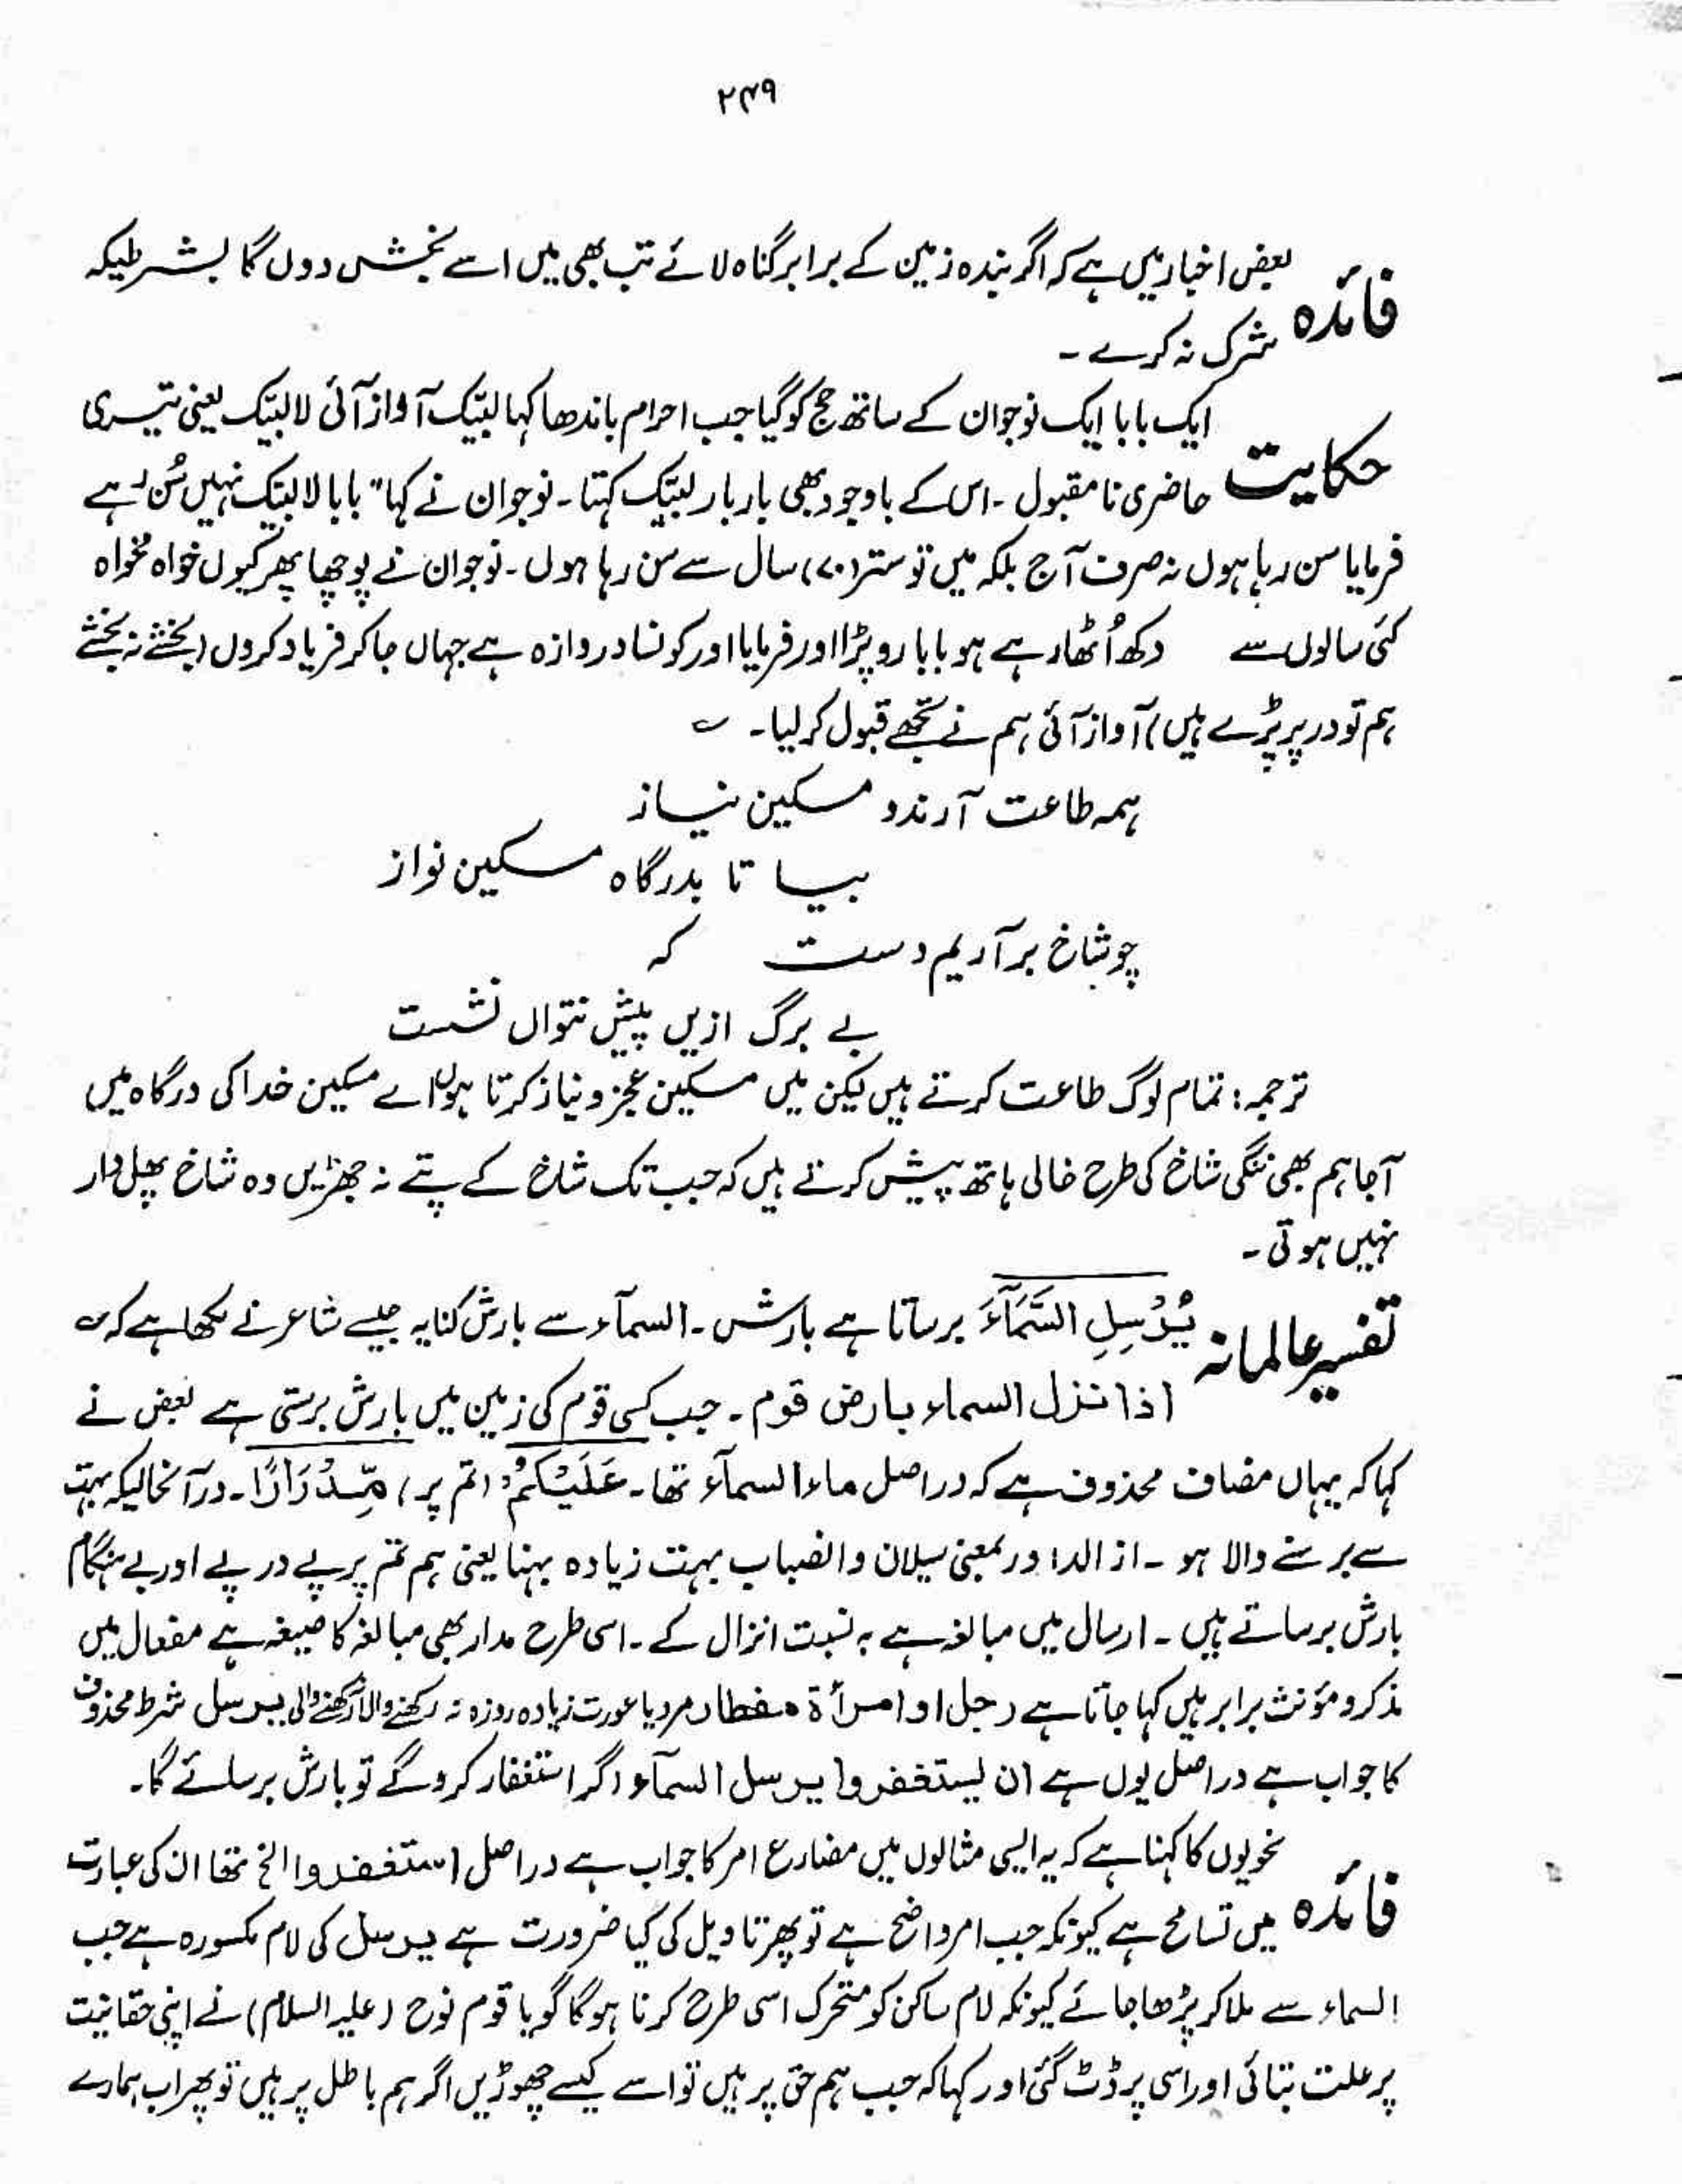 ۲۴۹
فائدہ بعض اخبار میں ہے کہ اگر بندہ زمین کے برابر گناہ لائے تب بھی میں اسے بخش دوں گا بشرطیکہ
شرک نہ کرے ۔
حکایت ایک بابا ایک نوجوان کے ساتھ حج کو گیا جب احرام باندھا کہا لبیّک آواز آئی لا لبیّک یعنی تیری
حاضری نا مقبول ۔ اس کے باوجود بھی بار بار لبیّک کہتا ۔ نوجوان نے کہا " بابا لا لبیّک نہیں سُن رہے
فرمایا سن رہا ہوں نہ صرف آج بلکہ میں تو ستر (۷۰) سال سے سن رہا ہوں ۔ نوجوان نے پوچھا پھر کیوں خواہ مخواہ
کئی سالوں سے دکھ اُٹھا رہے ہو بابا رو پڑا اور فرمایا اور کونسا دروازہ ہے جہاں جا کر فریاد کروں (بخشے نہ بخشے
ہم تو در پر پڑے ہیں) آواز آئی ہم نے تجھے قبول کر لیا ۔ ؎
ہمہ طاعت آرند و مسکین نیاز
بیا تا بدرگاہ مسکین نواز
چو شاخ بر آریم دست کہ
بے برگ ازیں پیش نتواں نشست
ترجمہ : تمام لوگ طاعت کرتے ہیں لیکن میں مسکین عجز و نیاز کرتا ہوں اے مسکین خدا کی درگاہ میں
آ جا ہم بھی ننگی شاخ کی طرح خالی ہاتھ پیش کرتے ہیں کہ جب تک شاخ کے پتے نہ جھڑیں وہ شاخ پھل دار
نہیں ہوتی ۔
تفسیر عالمانہ یُرْسِلِ السَّمَآءَ برساتا ہے بارش ۔ السمآء سے بارش کنایہ جیسے شاعر نے لکھا ہے کہ ؎
اذا نزل السماء بارض قوم ۔ جب کسی قوم کی زمین میں بارش برستی ہے بعض نے
کہا کہ یہاں مضاف محذوف ہے کہ دراصل ماء السمآء تھا ۔ عَلَیْکُمْ (تم پر) مِّدْرَارًا ۔ درآنحالیکہ بہت
سے برسنے والا ہو ۔ از الدرور بمعنی سیلان و انصباب بہت زیادہ بہنا یعنی ہم تم پر پے در پے اور بے ہنگام
بارش برساتے ہیں ۔ ارسال میں مبالغہ ہے بہ نسبت انزال کے ۔ اسی طرح مدار بھی مبالغہ کا صیغہ ہے مفعال میں
مذکر و مؤنث برابر ہیں کہا جاتا ہے رجل او امرأۃ مفطار مرد یا عورت زیادہ روزہ نہ رکھنے والا رکھنے والی یرسل شرط محذوف
کا جواب ہے دراصل یوں ہے ان یستغفروا یرسل السمآء (اگر استغفار کرو گے تو بارش برسائے گا ۔
فائدہ نحویوں کا کہنا ہے کہ یہ ایسی مثالوں میں مضارع امر کا جواب ہے دراصل استغفروا الخ تھا ان کی عبارت
میں تسامح ہے کیونکہ جب امر واضح ہے تو پھر تاویل کی کیا ضرورت ہے یرسل کی لام مکسورہ ہے جب
السماء سے ملا کر پڑھا جائے کیونکہ لام ساکن کو متحرک اسی طرح کرنا ہوگا گویا قوم نوح (علیہ السلام) نے اپنی حقانیت
پر علت بتائی اور اسی پر ڈٹ گئی اور کہا کہ جب ہم حق پر ہیں تو اسے کیسے چھوڑیں اگر ہم باطل پر ہیں تو پھر اب ہمارے